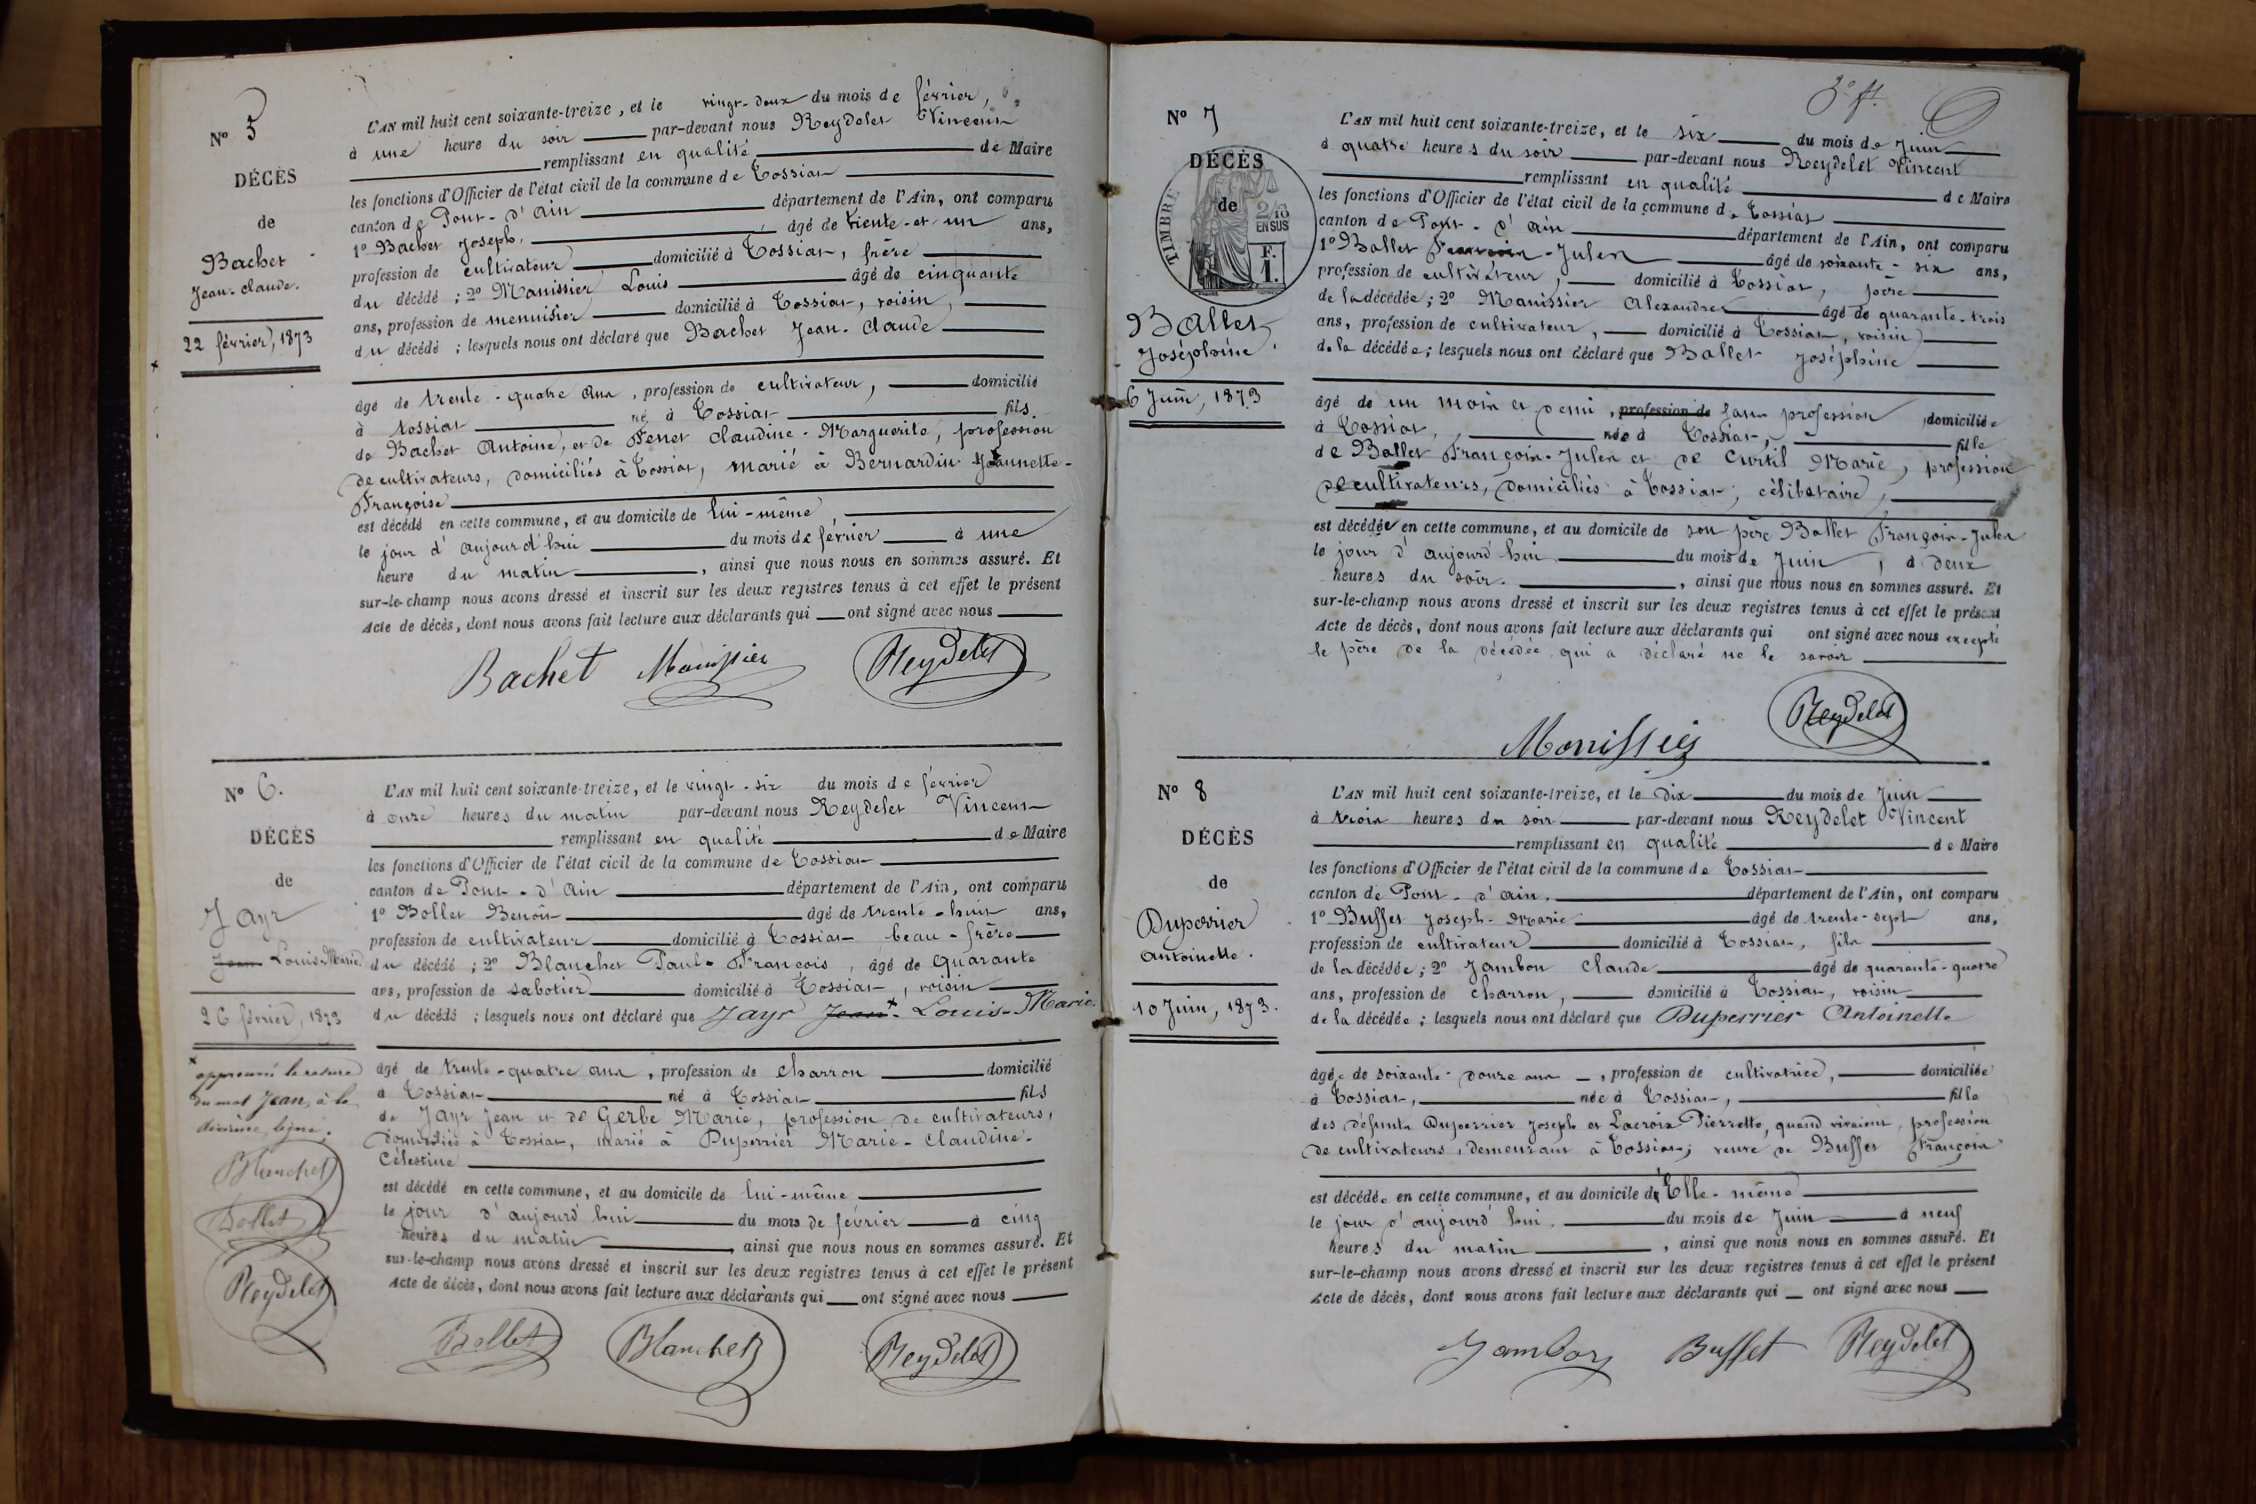 N° 5
DÉCÈS
de
Bachet
Jean-Claude.
22 février, 1873
L'AN mil huit cent soixante-treize, et le vingt-deux du mois de février,
à une heure du soir par-devant nous Reydelet Vincent
remplissant en qualité de Maire
les fonctions d'Officier de l'état civil de la commune de Tossiat
canton de Pont-d'Ain département de l'Ain, ont comparu
1° Bachet Joseph, âgé de trente-et-un ans,
profession de cultivateur domicilié à Tossiat, frère
du décédé ; 2° Manissier Louis âgé de cinquante
ans, profession de menuisier domicilié à Tossiat, voisin,
du décédé ; lesquels nous ont déclaré que Bachet Jean-Claude
âgé de trente-quatre ans, profession de cultivateur, domicilié
à Tossiat né à Tossiat fils
de Bachet Antoine, et de Feret Claudine-Marguerite, profession
de cultivateurs, domiciliés à Tossiat, marié à Bernardin Jeannette-
Françoise
est décédé en cette commune, et au domicile de lui-même
le jour d'aujourd'hui du mois de février à une
heure du matin, ainsi que nous nous en sommes assuré. Et
sur-le-champ nous avons dressé et inscrit sur les deux registres tenus à cet effet le présent
Acte de décès, dont nous avons fait lecture aux déclarants qui ont signé avec nous
Bachet Manissier Reydelet
N° 6.
DÉCÈS
de
Jayr
Jean Louis-Marie
26 février, 1873
* approuvé la rature
du mot Jean, à la
dixième ligne.
Blanchet
Bollet
Reydelet
L'AN mil huit cent soixante-treize, et le vingt-six du mois de février
à onze heures du matin par-devant nous Reydelet Vincent
remplissant en qualité de Maire
les fonctions d'Officier de l'état civil de la commune de Tossiat
canton de Pont-d'Ain département de l'Ain, ont comparu
1° Bollet Benoît âgé de trente-huit ans,
profession de cultivateur domicilié à Tossiat beau-frère
du décédé ; 2° Blanchet Paul-François, âgé de quarante
ans, profession de sabotier domicilié à Tossiat, voisin
du décédé ; lesquels nous ont déclaré que Jayr Jean*-Louis-Marie
âgé de trente-quatre ans, profession de charron domicilié
à Tossiat né à Tossiat fils
de Jayr Jean et de Gerbe Marie, profession de cultivateurs,
domiciliés à Tossiat, marié à Duperrier Marie-Claudine-
Célestine
est décédé en cette commune, et au domicile de lui-même
le jour d'aujourd'hui du mois de février à cinq
heures du matin, ainsi que nous nous en sommes assuré. Et
sur-le-champ nous avons dressé et inscrit sur les deux registres tenus à cet effet le présent
Acte de décès, dont nous avons fait lecture aux déclarants qui ont signé avec nous
Bollet Blanchet Reydelet
3e ft.
N° 7
DÉCÈS
de
TIMBRE
2/10
EN SUS
F.
1.
Ballet
Joséphine.
6 Juin, 1873
L'AN mil huit cent soixante-treize, et le six du mois de Juin
à quatre heures du soir par-devant nous Reydelet Vincent
remplissant en qualité de Maire
les fonctions d'Officier de l'état civil de la commune de Tossiat
canton de Pont-d'Ain département de l'Ain, ont comparu
1° Ballet François-Julen âgé de soixante-six ans,
profession de cultivateur, domicilié à Tossiat, père
de la décédée ; 2° Manissier Alexandre âgé de quarante-trois
ans, profession de cultivateur, domicilié à Tossiat, voisin
de la décédée ; lesquels nous ont déclaré que Ballet Joséphine
âgé de un mois et demi, profession de sans profession domiciliée
à Tossiat, née à Tossiat, fille
de Ballet François-Julen et de Curtil Marie, profession
de cultivateurs, domiciliés à Tossiat, célibataire,
est décédée en cette commune, et au domicile de son père Ballet François-Julen
le jour d'aujourd'hui du mois de Juin, à deux
heures du soir, ainsi que nous nous en sommes assuré. Et
sur-le-champ nous avons dressé et inscrit sur les deux registres tenus à cet effet le présent
Acte de décès, dont nous avons fait lecture aux déclarants qui ont signé avec nous excepté
le père de la décédée qui a déclaré ne le savoir
Reydelet
Manissier
N° 8
DÉCÈS
de
Duperrier
Antoinette.
10 Juin, 1873.
L'AN mil huit cent soixante-treize, et le dix du mois de Juin
à trois heures du soir par-devant nous Reydelet Vincent
remplissant en qualité de Maire
les fonctions d'Officier de l'état civil de la commune de Tossiat
canton de Pont-d'Ain. département de l'Ain, ont comparu
1° Buffet Joseph-Marie âgé de trente-sept ans,
profession de cultivateur domicilié à Tossiat, fils
de la décédée ; 2° Jambon Claude âgé de quarante-quatre
ans, profession de charron, domicilié à Tossiat, voisin
de la décédée ; lesquels nous ont déclaré que Duperrier Antoinette
âgée de soixante-douze ans, profession de cultivatrice, domiciliée
à Tossiat, née à Tossiat, fille
des défunts Duperrier Joseph et Lacroix Pierrette, quand vivaient, profession
de cultivateurs, demeurant à Tossiat; veuve de Buffet François
est décédée en cette commune, et au domicile d'Elle-même
le jour d'aujourd'hui du mois de Juin à neuf
heures du matin, ainsi que nous nous en sommes assuré. Et
sur-le-champ nous avons dressé et inscrit sur les deux registres tenus à cet effet le présent
Acte de décès, dont nous avons fait lecture aux déclarants qui ont signé avec nous
Jambon Buffet Reydelet